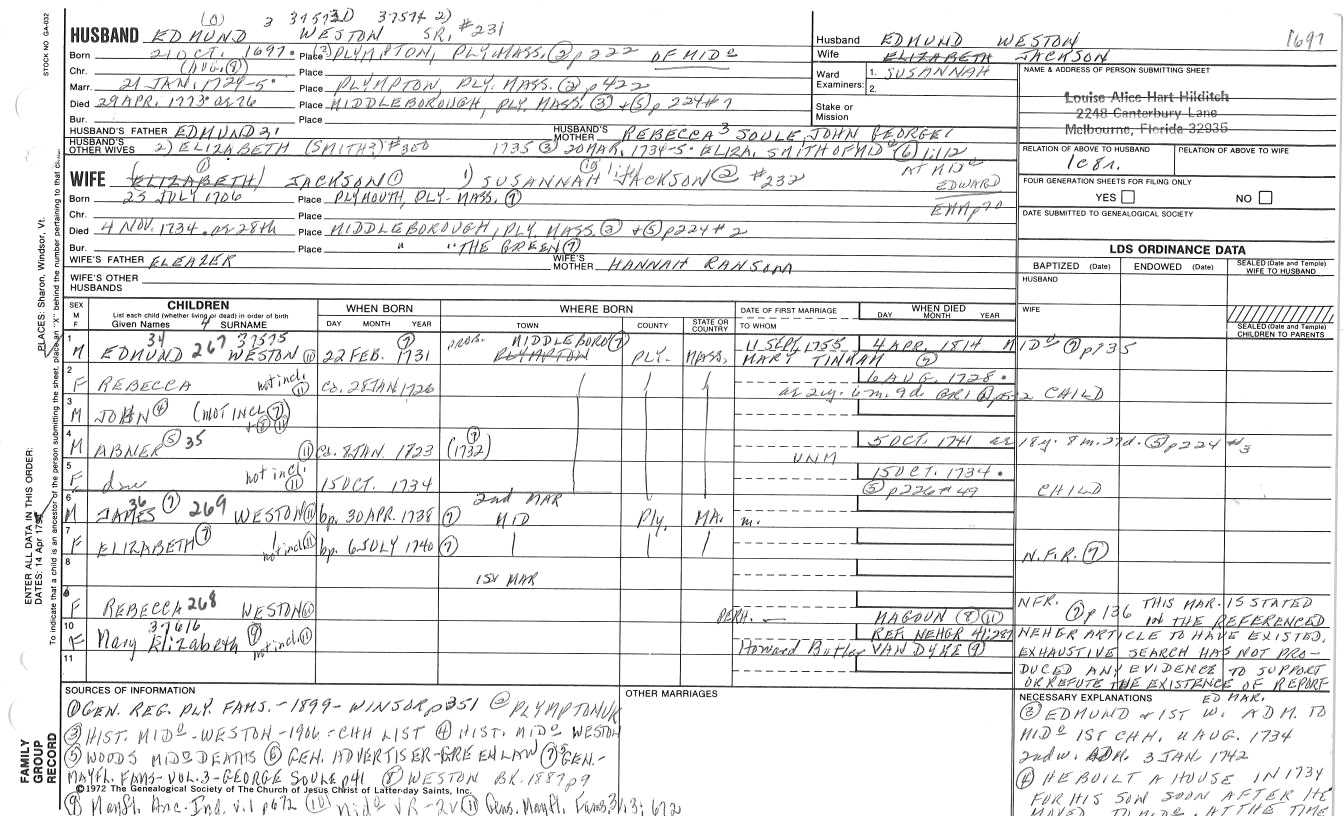 STOCK NO GA-032
(0) 2 3757320 37574 2)
HUSBAND EDMUND WESTON SR. #231
Born 21 OCT. 1697. Place (3) PLYMPTON, PLY. MASS. (2) p222 OF MIDº
Chr. (AUG. (8)) Place
Marr. 21 JAN. 1724-5. Place PLYMPTON, PLY. MASS. (2) p422
Died 29 APR. 1773 ae 76 Place MIDDLEBOROUGH, PLY. MASS. (3) +(5) p224#7
Bur. Place
HUSBAND'S FATHER EDMUND 2, HUSBAND'S MOTHER REBECCA 3 SOULE, JOHN GEORGE 1
HUSBAND'S OTHER WIVES 2) ELIZABETH (SMITH?) #300 1735 (3) 20 MAR. 1734-5. ELIZA. SMITH OF MIDº (6) 1:112
AT MIDº
WIFE (ELIZABETH) (1) JACKSON (1) 1) SUSANNAH (10) JACKSON (2) #232
EDWARD
Born 23 JULY 1706 Place PLYMOUTH, PLY. MASS. (7)
Chr. Place
Died 4 NOV. 1734. ae 28th Place MIDDLEBOROUGH, PLY. MASS (3) +(5) p224#2
Bur. Place " "THE GREEN (7)
WIFE'S FATHER ELEAZER WIFE'S MOTHER HANNAH RANSOM
WIFE'S OTHER HUSBANDS
Husband EDMUND WESTON 1697
Wife ELIZABETH JACKSON
Ward Examiners: 1. SUSANNAH
2.
Stake or Mission
NAME & ADDRESS OF PERSON SUBMITTING SHEET
Louise Alice Hart Hilditch
2248 Canterbury Lane
Melbourne, Florida 32935
RELATION OF ABOVE TO HUSBAND RELATION OF ABOVE TO WIFE
1c8r.
FOUR GENERATION SHEETS FOR FILING ONLY
YES NO
DATE SUBMITTED TO GENEALOGICAL SOCIETY
LDS ORDINANCE DATA
BAPTIZED (Date) ENDOWED (Date) SEALED (Date and Temple) WIFE TO HUSBAND
HUSBAND
WIFE
SEALED (Date and Temple) CHILDREN TO PARENTS
SEX M F CHILDREN WHEN BORN WHERE BORN DATE OF FIRST MARRIAGE WHEN DIED
List each child (whether living or dead) in order of birth
Given Names 4 SURNAME DAY MONTH YEAR TOWN COUNTY STATE OR COUNTRY TO WHOM DAY MONTH YEAR
1 M 34 EDMUND 267 37575 WESTON (10) 22 FEB. 1731 (7) PROB. MIDDLEBORO (7) PLYMPTON PLY. MASS. 11 SEPT. 1755 4 APR. 1814 MIDº (7) p135
MARY TINKHAM (9)
2 F REBECCA not incl. (11) ca. 28 JAN 1726 6 AUG. 1728.
ae 2y. 6 m. 9d. CHILD
3 M JOHN (4) (NOT INCL (7) + (8) (11)
4 M ABNER (5) 35 (11) ca. 8 JAN. 1723 (1732) (7) 5 OCT. 1741 ae 18y. 8m. 27d. (5) p224 #3
UNM
5 F dau not incl. (11) 15 OCT. 1734 15 OCT. 1734.
(5) p226#49 CHILD
6 M 36 JAMES (7) 269 WESTON (10) bp. 30 APR. 1738 (7) 2nd MAR MID PLY. MA. m.
7 F ELIZABETH (7) not incl. (11) bp. 6 JULY 1740 (7) N.F.R. (7)
8 1st MAR
9 F REBECCA 268 WESTON (10) PERH. — MAGOUN (8) (11)
REF. NEHGR 41:287
10 F 37616 Mary Elizabeth (9) not incl. (11) Howard Butler VAN DYKE (9)
11
NFR. (7) p136 THIS MAR. IS STATED
IN THE REFERENCED
NEHGR ARTICLE TO HAVE EXISTED.
EXHAUSTIVE SEARCH HAS NOT PRO-
DUCED ANY EVIDENCE TO SUPPORT
OR REFUTE THE EXISTENCE OF REPORT
ED MAR.
SOURCES OF INFORMATION
(1) GEN. REG. PLY. FAMS. - 1899 - WINSOR p351 (2) PLYMPTON VR
(3) HIST. MIDº - WESTON - 1906 - CHH LIST (4) HIST. MIDº WESTON
(5) WOODS MIDº DEATHS (6) GEN. ADVERTISER - GREENLAW (7) 5 GEN. -
MAYFL. FAMS - VOL. 3 - GEORGE SOULE p41 (8) WESTON BR. 1887 p9
©1972 The Genealogical Society of The Church of Jesus Christ of Latter-day Saints, Inc.
(9) Mayfl. Anc. Ind. v.1 p672 (10) Midº VR - 2V (11) Gens. Mayfl. Fams. 3V. 3: 672
OTHER MARRIAGES
NECESSARY EXPLANATIONS
(3) EDMUND & 1ST W. ADM. TO
MIDº 1ST CHH. 4 AUG. 1734
2nd w. ADM. 3 JAN. 1742
(4) HE BUILT A HOUSE IN 1734
FOR HIS SON SOON AFTER HE
MOVED TO MIDº. AT THE TIME
ENTER ALL DATA IN THIS ORDER:
DATES: 14 Apr 1794
PLACES: Sharon, Windsor, Vt.
To indicate that a child is an ancestor of the person submitting the sheet, place an "X" behind the number pertaining to that child.
FAMILY GROUP RECORD